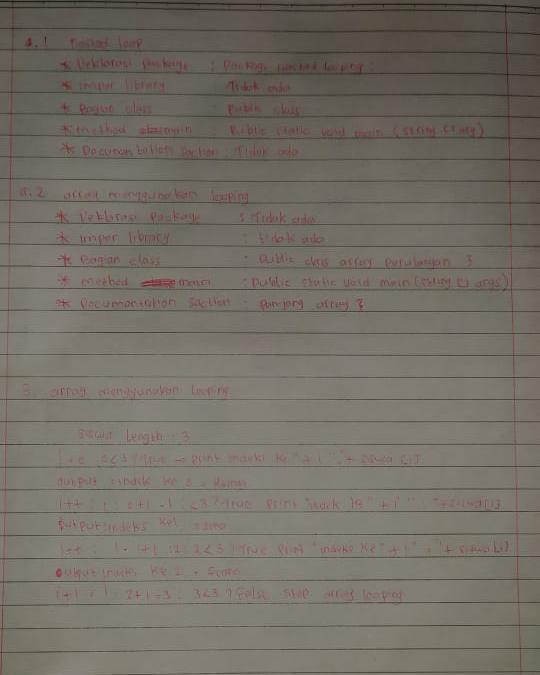 a.1 nested loop
* Deklarasi package : Package nested looping :
* impor library : Tidak ada
* Bagian class : Public class
* method main : Public static void main (string [] arg)
* Documentation section : Tidak ada
a.2 array menggunakan looping
* Deklarasi Package : Tidak ada
* impor library : tidak ada
* Bagian class : public class array perulangan 3
* method main : public static void main (string [] args)
* Documentation section : panjang array 3
3. array menggunakan looping
siswa length : 3
0 < 3 ? True → print indeks ke " + i + siswa [i]
output : indeks ke 0 =
i++ : 0+1 = 1 : < 3 ? True print "indeks ke" + i " : " + siswa [i]
output : indeks ke 1
i++ : 1+1 : 2 : 2 < 3 ? True print "indeks ke" + i " = " + siswa [i]
output indeks ke 2 =
2+1 = 3 : 3 < 3 ? False stop array looping